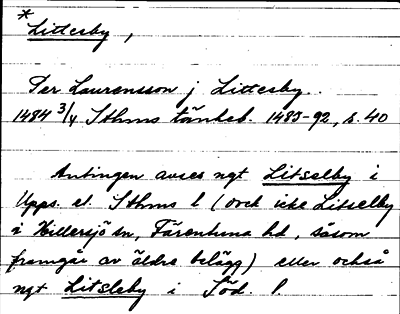 *Littesby,
Per Laurensson j Littesby.
1484 3/4 Sthms tänkeb. 1483-92, s. 40
Antingen avses ngt Litselby i
Upps. el. Sthms l (dock icke Litselby
i Hillersjö sn, Färentuna hd, såsom
framgår av äldre belägg) eller också
ngt Litsleby i Söd. l.